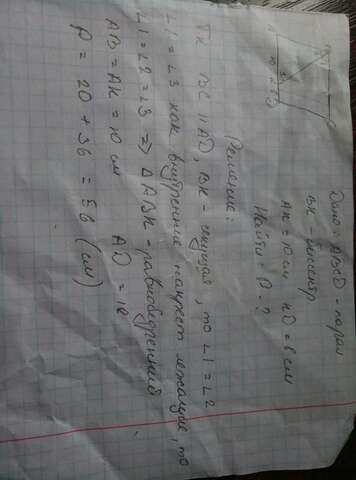 Дано: ABCD – парал
BK – биссектр
AK = 10 см KD = 8 см
Найти: P - ?
Решение:
Тк BC || AD, BK – секущая, то ∠1 = ∠2
∠1 = ∠3 как внутренние накрест лежащие, то
∠1 = ∠2 = ∠3 => ΔABK – равнобедренный
AB = AK = 10 см AD = 18
P = 20 + 36 = 56 (см)